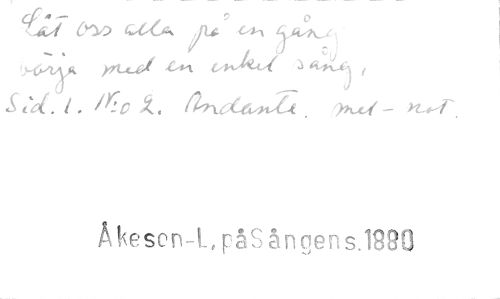 Låt oss alla på en gång
börja med en enkel sång,
Sid. 1. N:o 2. Andante. mel-not.
Åkeson-L, påSångens.1880